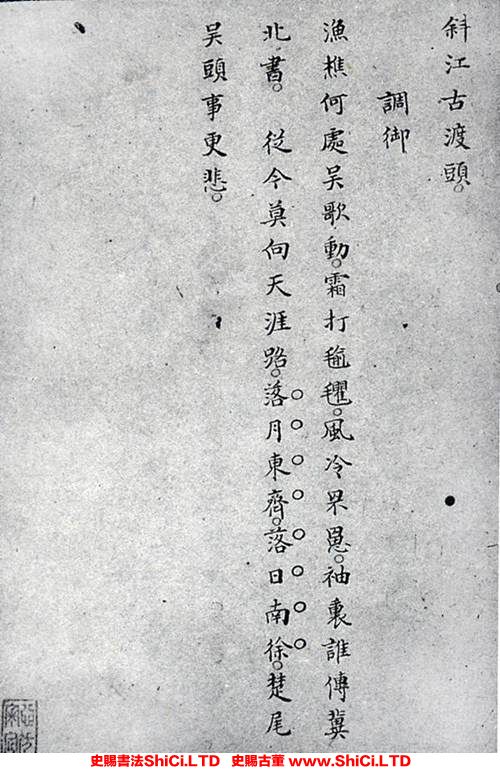 斜江古渡頭。
調御
漁樵何處吳歌動。霜打毹氍。風冷罘罳。袖裏誰傳冀
北書。 從今莫向天涯路。落月東齊。落日南徐。楚尾
吳頭事更悲。
史賜書法ShiCi.LTD 史賜古董www.ShiCi.LTD